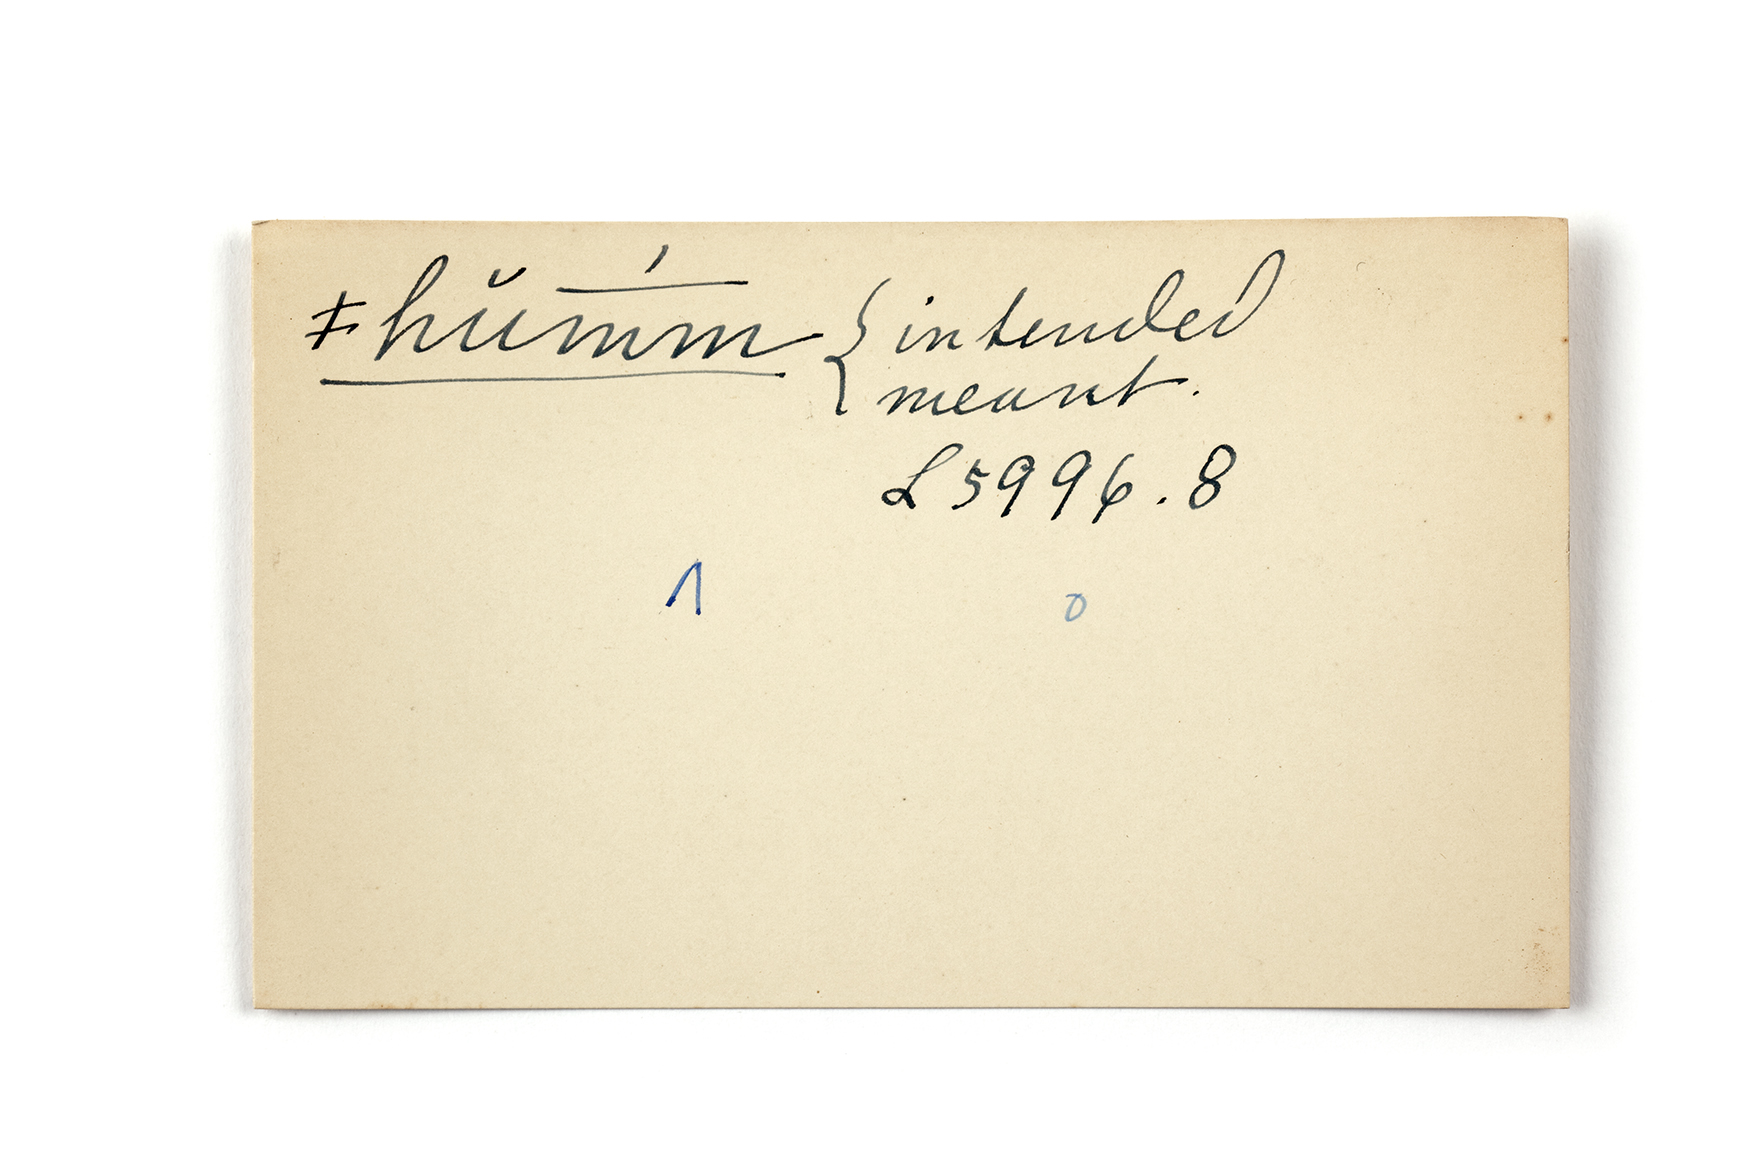 ǂhŭm̅́m { intended
meant.
L 5996.8
1 0